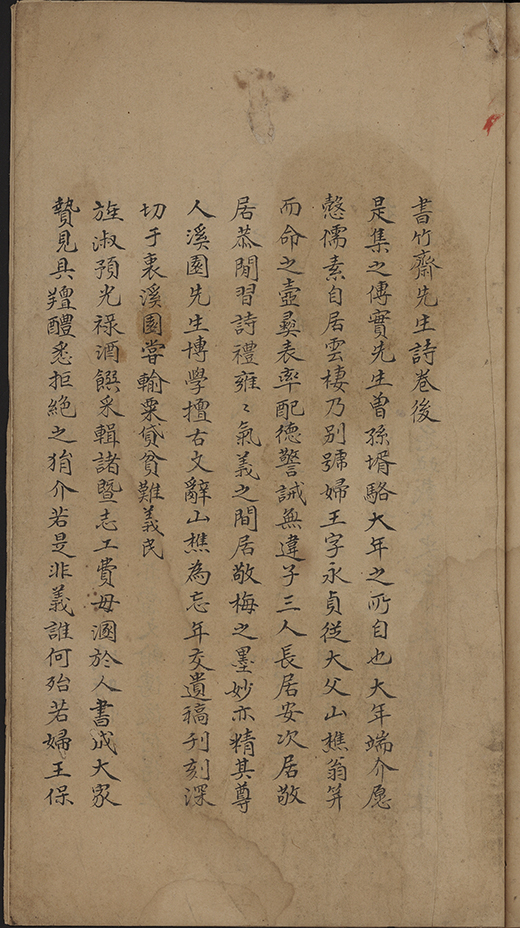 書竹齋先生詩卷後
是集之傳實先生曽孫壻駱大年之所自也大年端介愿
慤儒素自居雲棲乃别號婦王字永貞從大父山樵翁笄
而命之壼彞表率配德警誡無違子三人長居安次居敬
居恭閒習詩禮雍〻氣義之間居敬梅之墨妙亦精其尊
人溪園先生博學擅古文辭山樵為忘年交遺稿刋刻深
切于衷溪園嘗輸粟貸貧難義民
旌淑預光禄酒饌采輯諸暨志工費毋溷於人書成大家
贄見具羶醴悉拒絶之狷介若是非義誰何殆若婦王保